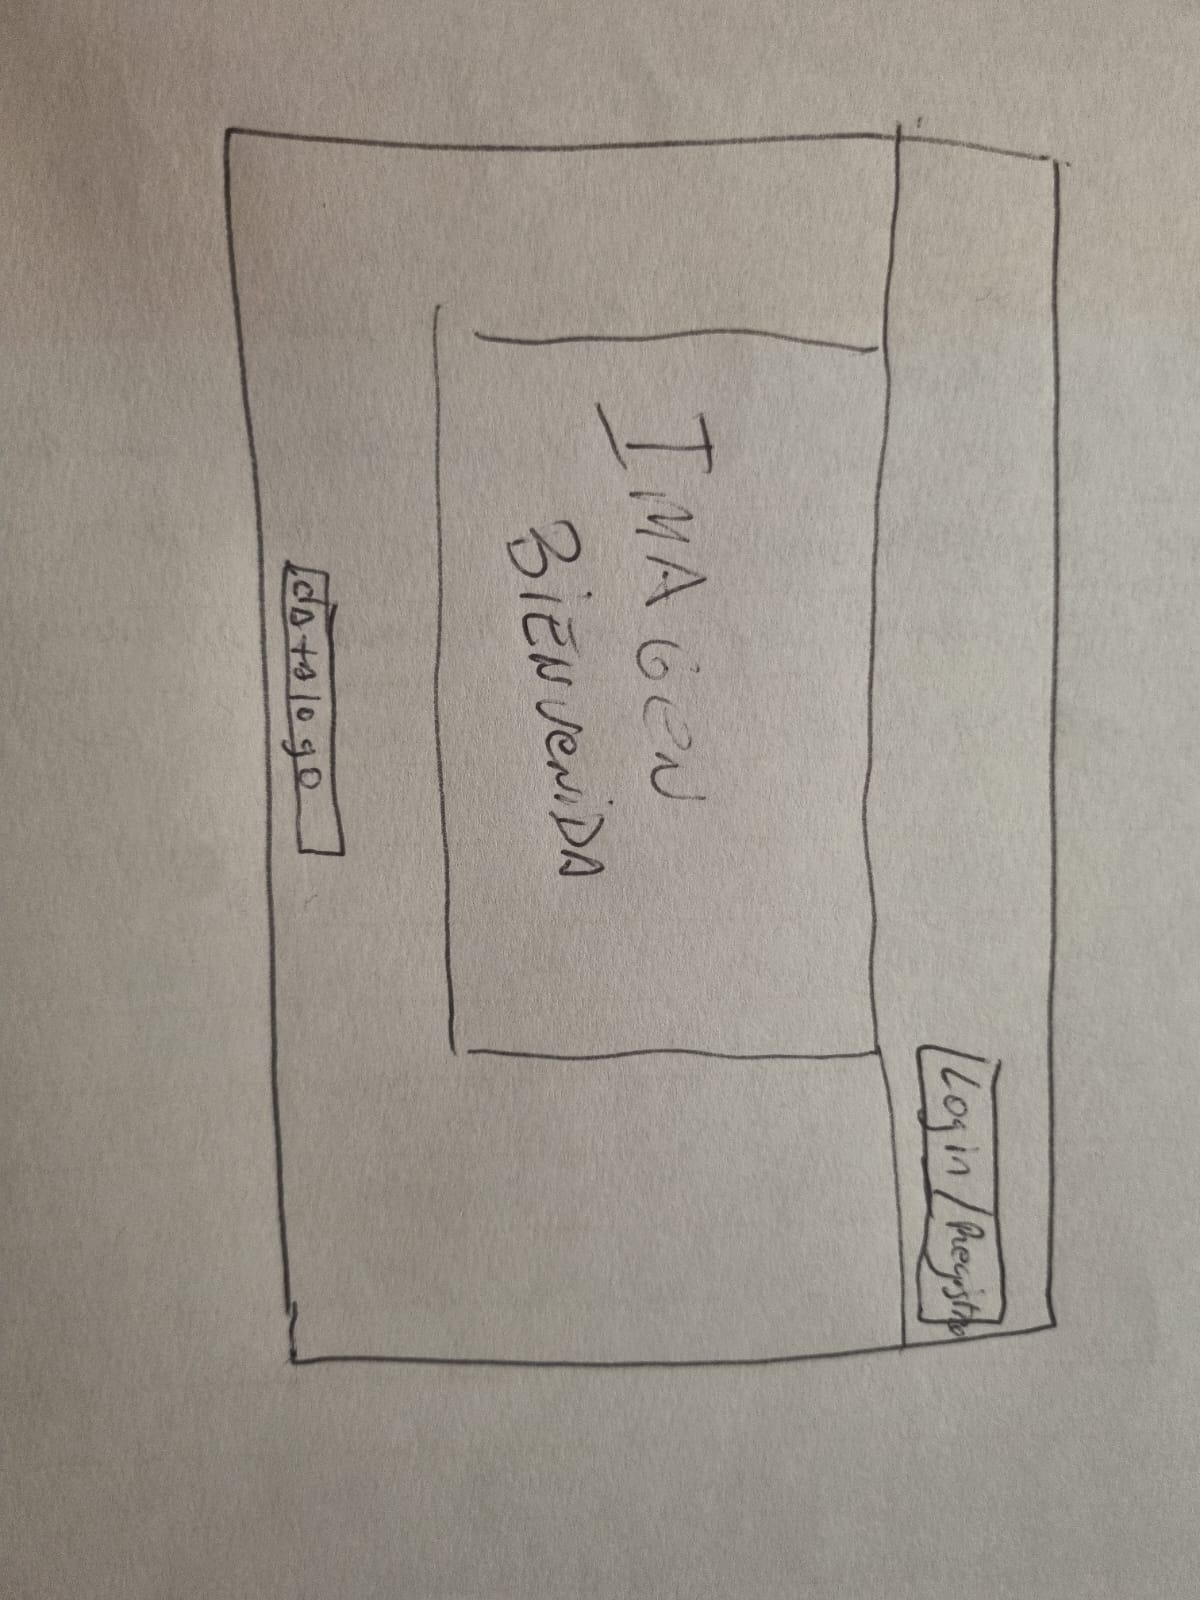 Login / Registro
IMAGEN
BIENVENIDA
catalogo